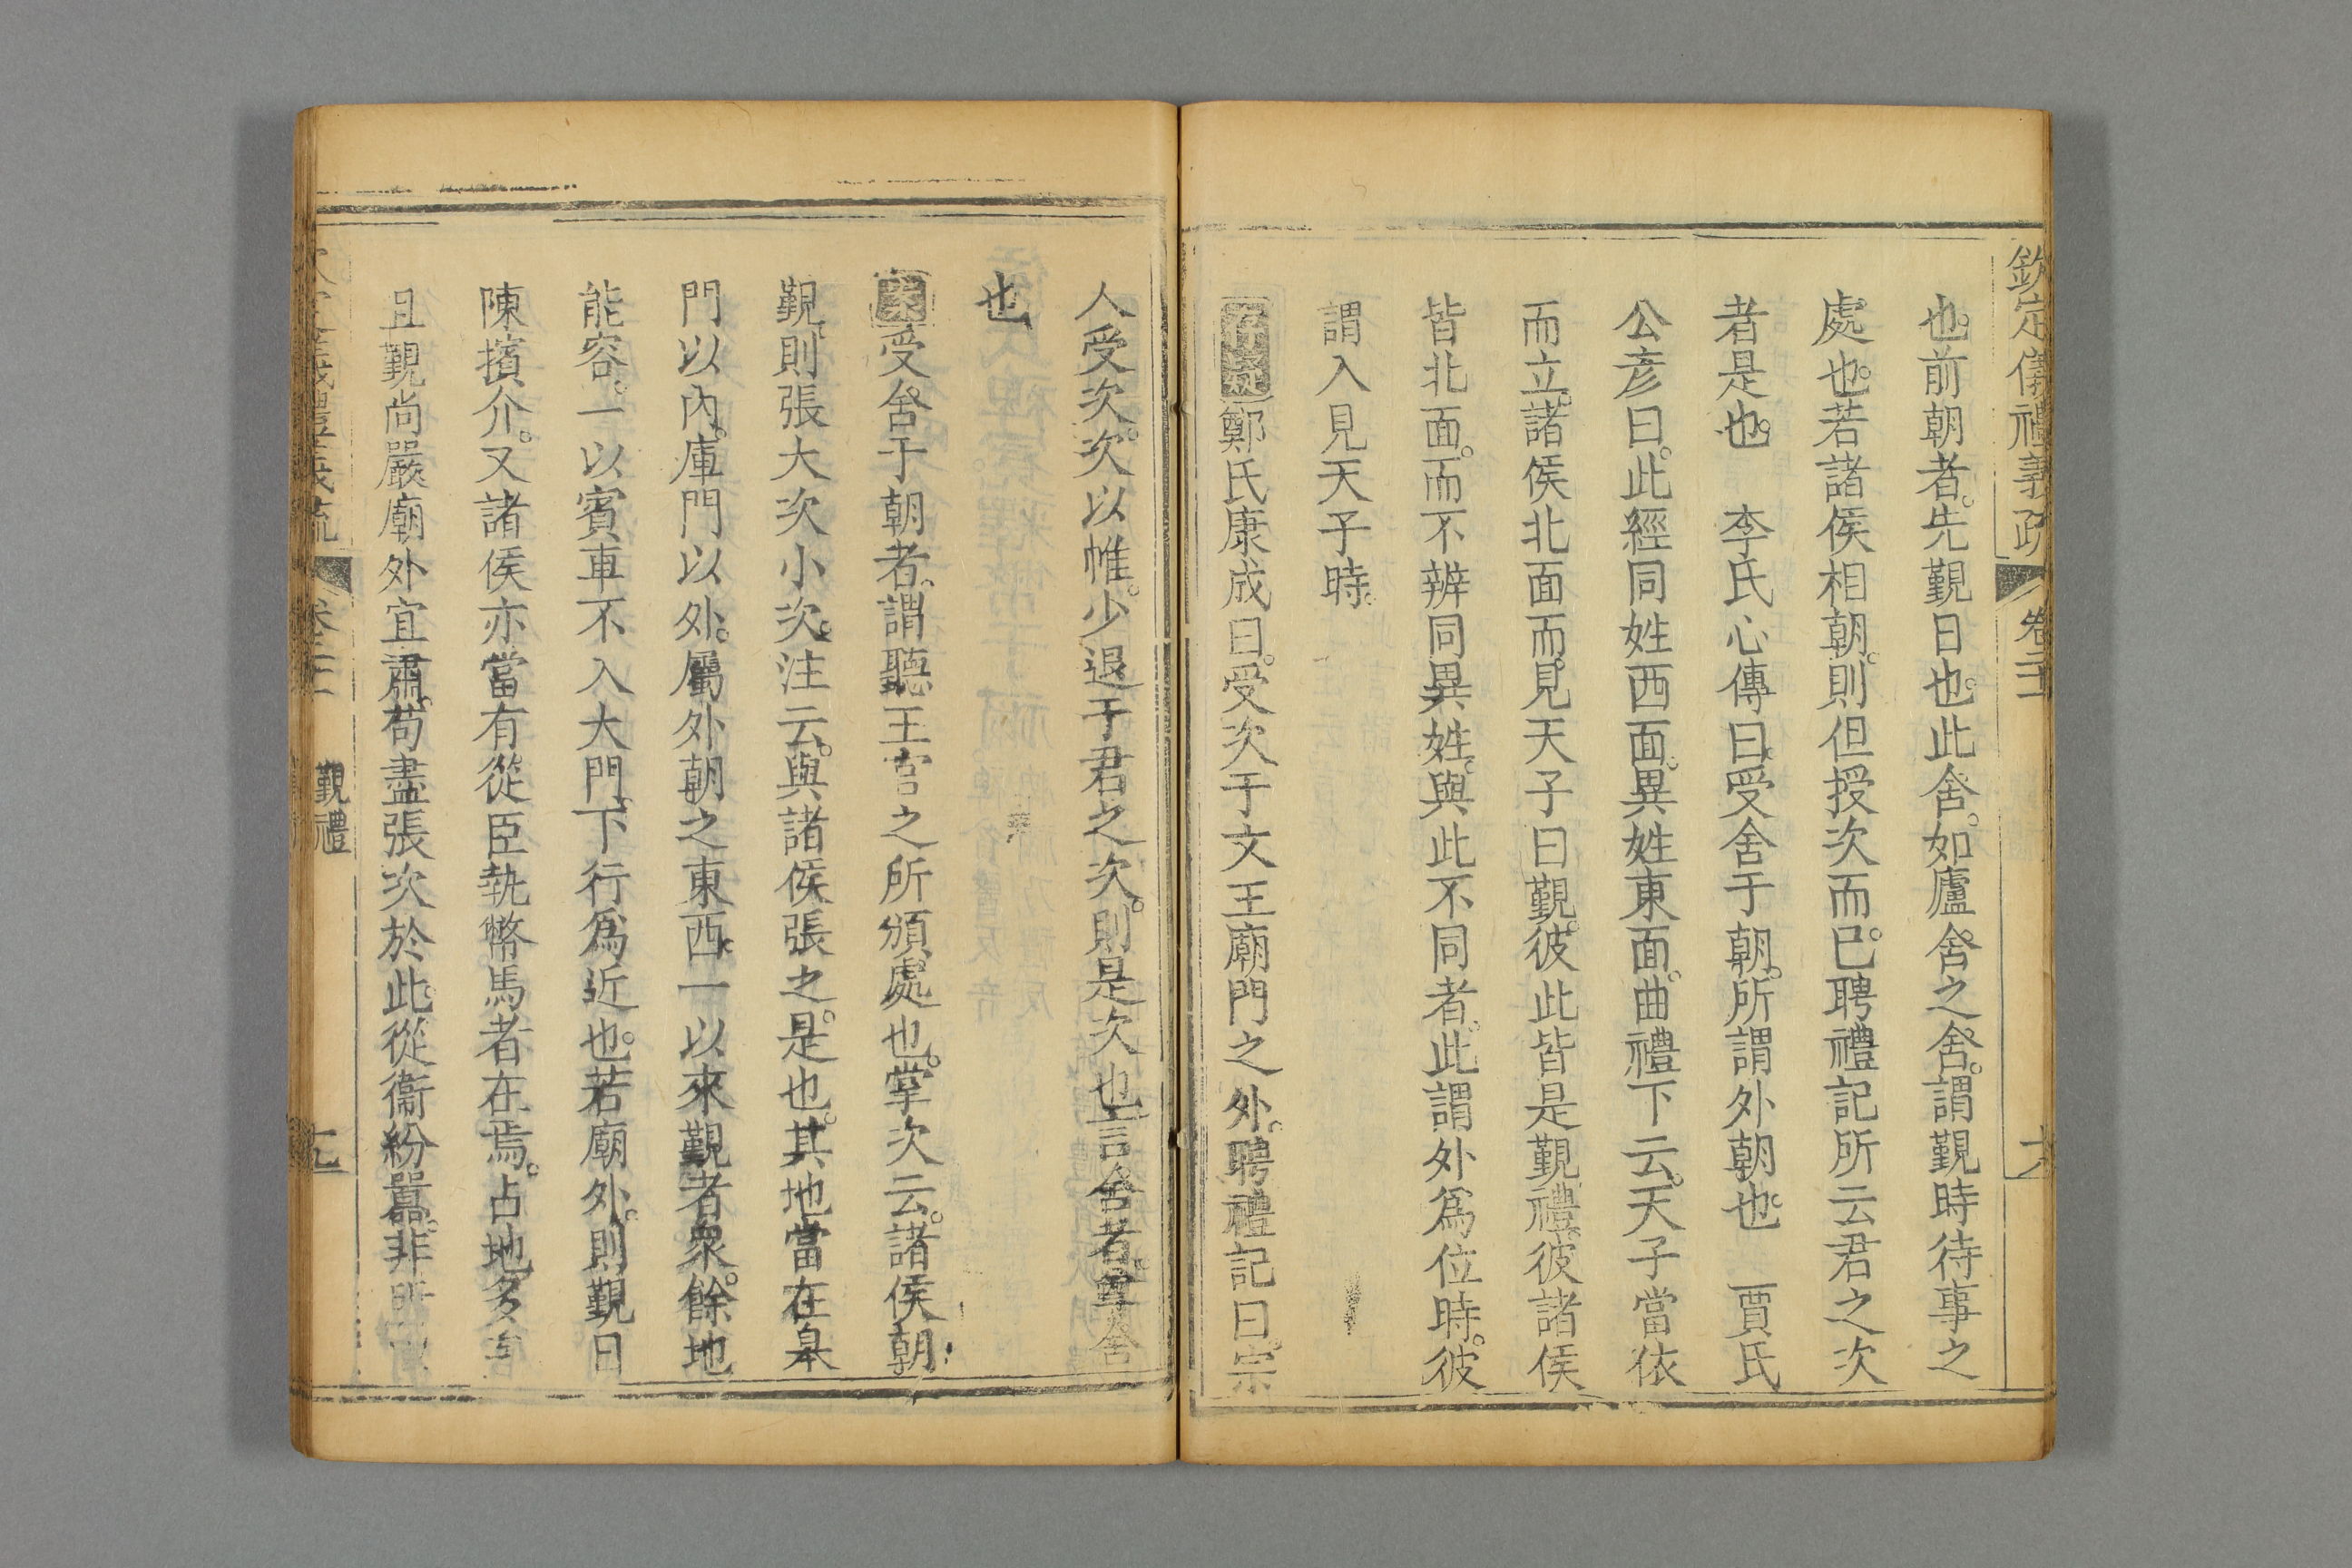 欽定儀禮義疏 卷二十 六
也。前朝者。先覲日也。此舍。如廬舍之舍。謂覲時待事之
處也。若諸侯相朝。則但授次而已。聘禮記所云君之次
者是也。 李氏心傳曰。受舍于朝。所謂外朝也。 賈氏
公彥曰。此經同姓西面。異姓東面。曲禮下云。天子當依
而立。諸侯北面而見天子曰覲。彼此皆是覲禮。彼諸侯
皆北面。而不辨同異姓。與此不同者。此謂外爲位時。彼
謂入見天子時。
鄭氏康成曰。受次于文王廟門之外。聘禮記曰。宗
人受次。次以帷。少退于君之次。則是次也。言舍者。尊舍
也
案受舍于朝者。謂聽王官之所頒處也。掌次云。諸侯朝
覲。則張大次小次。注云。與諸侯張之。是也。其地當在皋
門以內。庫門以外。屬外朝之東西。一以來覲者衆。餘地
能容。一以賓車不入大門。下行爲近也。若廟外。則覲日
陳擯介。又諸侯亦當有從臣執幣馬者在焉。占地多
且覲尚嚴。廟外宜肅。苟盡張次於此。從衞紛囂。非所
覲禮